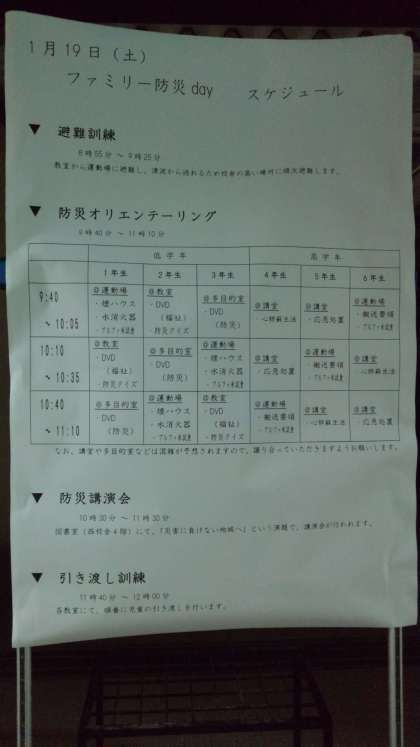 1月19日(土)
ファミリー防災day　スケジュール
▼ 避難訓練
8時55分 ～ 9時25分
教室から運動場に避難し、津波から逃れるため校舎の高い場所に順次避難します。
▼ 防災オリエンテーリング
9時40分 ～ 11時10分
低学年　高学年
1年生　2年生　3年生　4年生　5年生　6年生
9:40 ～ 10:05
@運動場
・煙ハウス
・水消火器
・アルファ米試食
@教室
・DVD
(福祉)
・防災クイズ
@多目的室
・DVD
(防災)
@講堂
・心肺蘇生法
@講堂
・応急処置
@運動場
・搬送要領
・アルファ米試食
10:10 ～ 10:35
@教室
・DVD
(福祉)
・防災クイズ
@多目的室
・DVD
(防災)
@運動場
・煙ハウス
・水消火器
・アルファ米試食
@講堂
・応急処置
@運動場
・搬送要領
・アルファ米試食
@講堂
・心肺蘇生法
10:40 ～ 11:10
@多目的室
・DVD
(防災)
@運動場
・煙ハウス
・水消火器
・アルファ米試食
@教室
・DVD
(福祉)
・防災クイズ
@運動場
・搬送要領
・アルファ米試食
@講堂
・心肺蘇生法
@講堂
・応急処置
なお、講堂や多目的室などは混雑が予想されますので、譲り合っていただきますようお願いします。
▼ 防災講演会
10時30分 ～ 11時30分
図書室(西校舎4階)にて、「災害に負けない地域へ」という演題で、講演会が行われます。
▼ 引き渡し訓練
11時40分 ～ 12時00分
各教室にて、順番に児童の引き渡しを行います。